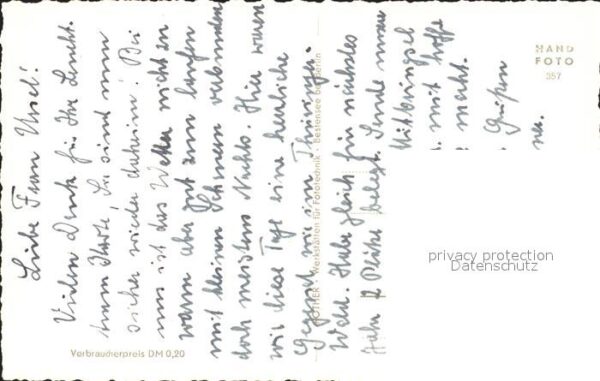 Liebe Frau Ursel!
Vielen Dank für Ihre
Karte. Sie sind nun
sicher wieder daheim! Bei
uns ist das Wetter nicht so
warm aber gut zum laufen
mit kleinen Schauern verbunden
doch meistens Nachts. Hier waren
wir diese Tage eine herrliche
Gegend wie im Thüringer-
Wald. Habe gleich für nächstes
Jahr 2 Plätze belegt. Sende man
mit hoffe
macht.
Grüßen
Verbraucherpreis DM 0,20
Werkstätten für Fototechnik · Bestensee bei Berlin
HAND
FOTO
357
privacy protection
Datenschutz